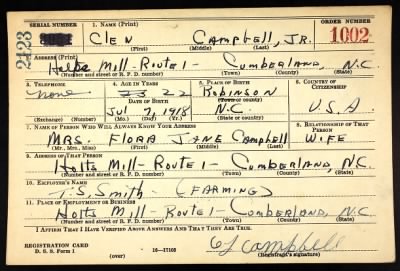 SERIAL NUMBER 1. NAME (Print) ORDER NUMBER
2423 Clen Campbell, Jr. 1002
(First) (Middle) (Last)
ADDRESS (Print)
Holts Mill-Route 1- Cumberland, N.C.
(Number and street or R. F. D. number) (Town) (County) (State)
3. TELEPHONE 4. AGE IN YEARS 5. PLACE OF BIRTH 6. COUNTRY OF CITIZENSHIP
none 22 Robinson
DATE OF BIRTH (Town or county)
July 1918 N.C. U.S.A
(Exchange) (Number) (Mo.) (Day) (Yr.) (State or country)
7. NAME OF PERSON WHO WILL ALWAYS KNOW YOUR ADDRESS 8. RELATIONSHIP OF THAT PERSON
MRS. FLORA JANE Campbell WIFE
(Mr., Mrs., Miss) (First) (Middle) (Last)
9. ADDRESS OF THAT PERSON
Holts Mill-Route 1- Cumberland, N.C.
(Number and street or R. F. D. number) (Town) (County) (State)
10. EMPLOYER'S NAME
Smith (FARMING)
11. PLACE OF EMPLOYMENT OR BUSINESS
Holts Mill-Route 1- Cumberland, N.C.
(Number and street or R. F. D. number) (Town) (County) (State)
I AFFIRM THAT I HAVE VERIFIED ABOVE ANSWERS AND THAT THEY ARE TRUE.
Campbell
REGISTRATION CARD
D. S. S. Form 1 (over) 16-17105 (Registrant's signature)